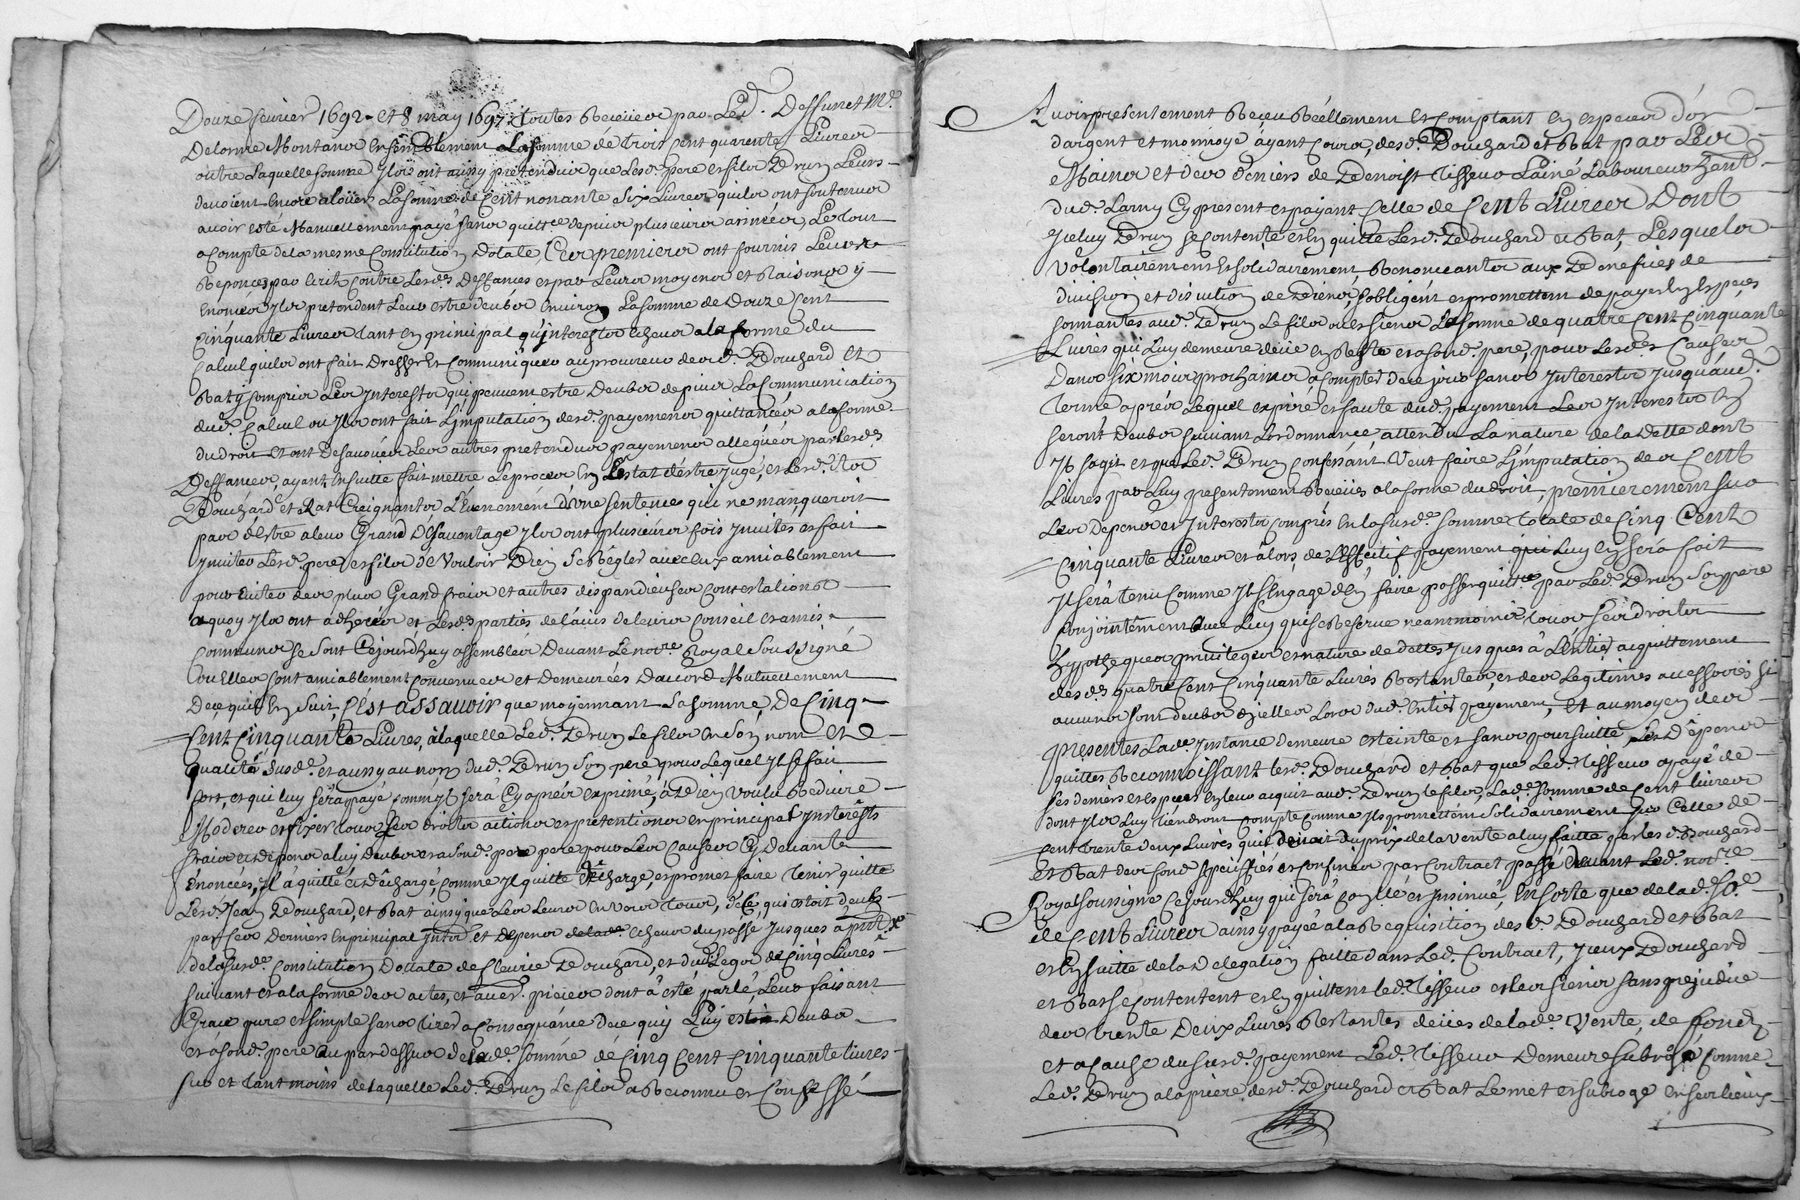 Douze fevrier 1692 et 8 may 1697 toutes Receües par Led. Deffunct Mr.
Delorme Montanor Ensemblement La somme de trois Cent quarente Livres
outre Laquelle somme Ilz ont aussy pretendu que Lesd. pere et filz Brun Leurs
devoient Encore aloüer La somme de Cent nonante six Livres quilz ont soutenus
avoir esté Manuellement payé sans quittce depuis plusieurs années, Le tout
a Compte de la mesme Constitution dotale Ces premiers ont fournis Leurs
Reponces par écrit Contre Lesdes Deffances et par Leurs moyens et Raisons y
Enoncés Ilz pretendent Leur estre deubz Environ La somme de Douze Cent
Cinquante Livres tant En principal qu'interestz Echeus a la forme du
Calcul quilz ont fait dresser Et Communiquer au procureur desd. Bouchard Et
Rat y Compris Les Interestz qui peuvent estre Deubz depuis La Communication
dud. Calcul ou Ilz ont fait L'imputation desd. payemens quittancés a la forme
du droit et ont desavoüé Les autres pretendus payemens allegués par lesdes
Deffances, ayant Ensuitte fait mettre Le proces En L'estat d'estre Jugé, et Lesd.
Bouchard et Rat Creignantz L'evenement d'une sentence qui ne manqueroit
pas d'estre a leur Grand Desavantage Ilz ont plusieurs fois Invités et fait
Inviter Lesd. pere et filz de Vouloir Bien se Régler avec Eux amiablement
pour Eviter de plus Grand fraix et autres dispandieuses Contestations
a quoy Ilz ont adheréz et Lesdes parties de l'avis de leurs Conseil et amis
Communs se sont Cejourdhuy assemblés Devant Le nore. Royal Soussigné
ou Elles sont amiablement Convenues et demeurées d'accord Mutuellement
De ce qui En Suit, C'est assavoir que moyennant La somme De Cinq
Cent Cinquante Livres, a laquelle Led. Brun Le filz En son nom Et
qualité Susd. et aussy au nom dud. Brun Son pere pour Lequel Il se fait
fort, et qui luy sera payé comm'Il sera Cy apres exprimé, a Bien Voulu Reduire
Moderer et fixer tous Ses droitz actions et pretentions en principal Interests
fraix et depens a luy Deubz et a sond. pere pour Les Causes Cy Devant
Enoncées, Il a quitté et déchargé, Comme Il quitte Decharge, et promet faire tenir quitte
Lesd. Jean Bouchard, et Rat ainsy que Les Leurs Envers tous, de Ce qui estoit deub
par Ces Derniers En principal Intz. et Depens Echeus du passé Jusques a pnt
de la susd. Constitution Dottale de Fleurie Bouchard, et dud. Legs de Cinq Livres
suivant et a la forme des actes, et aues. pieces dont a esté parlé, Leur faisant
Grace pure et simple sans tirer a Consequence de ce quy Luy est Deubz
et a sond. pere au par dessus de lade. somme de Cinq Cent Cinquante livres
sur et tant moins de laquelle Led. Brun Le filz a Reconnu et Confessé
Avoir presentement Receu Réellement et Comptant En especes d'or
d'argent et monnoyé ayant Cours, desd. Bouchard et Rat par Les
Mains et des deniers de Benoist Tisseur L'ainé Laboureur hant.
dud. Larny Cy present et payant Celle de Cent Livres Dont
Iceluy Brun se Contente et En quitte Lesd. Bouchard et Rat, Lesquelz
Volontairement et solidairement Renonceantz aux Benefices de
division et discution de Biens, s'obligent et promettent de payer En Especes
sonnantes aud. Brun Le filz ou es siens La somme de quatre Cent Cinquante
Livres qui Luy demeure deüe En Reste et a sond. pere, pour Lesd. Causes
Dans six mois prochains a Compter de ce jour sans Interestz Jusqu'aud.
terme apres Lequel expiré et faute dud. payement Les Interestz En
seront deubz suivant L'ordonnance attendu La nature de la dette dont
Il s'agit et que Led. Brun Confessant Veut faire L'imputation des Cent
Livres par Luy presentement Receües a la forme du droit, premierement sur
Les depens et Interestz Compris En la susd. somme totale de Cinq Cent
Cinquante Livres et alors de L'effectif payement qui Luy En sera fait
Il sera tenu Comme Il s'Engage d'En faire passer quittce par Led. Brun Son pere
Conjointement avec Luy qui se Reserve neantmoins tous Ses droitz
hypotheques privileges et nature de dettes Jusques a L'entier acquittement
desdes quatre Cent Cinquante Livres Restantes, et des Legitimes accessoires si
aucuns sont deubz d'jcelles Lors dud. entier payement, Et au moyen des
presentes Lade. Instance demeure esteinte et sans poursuitte Les Depens
quittes Reconnoissant Lesd. Bouchard et Rat que Led. Tisseur a payé de
ses deniers et especes En leur acquit aud. Brun le filz, Lade. somme de Cent Livres
dont Ilz Luy tiendront Compte Comme Ils promettent Solidairement sur Celle de
Cent trente deux Livres qui devait du prix de la Vente a luy faitte par lesd. Bouchard
et Rat des fonds speciffiés et confinés par Contract passé devant Led. nore.
Royal soussigné Cejourdhuy qui sera Controllé et Insinué, En sorte que de lad. so.e
de Cent Livres ainsy payée a la Requisition desd. Bouchard et Rat
et En suitte de la delegation faitte dans Led. Contract, Iceux Bouchard
et Rat se Contentent et En quittent led. Tisseur et les siens sans prejudice
des trente Deux Livres Restantes deües de lade. Vente, de fonds
et a Cause du susd. payement Led. Tisseur Demeure subrogé Comme
Led. Brun a la priere desd. Bouchard et Rat Le met et subroge En ses lieux